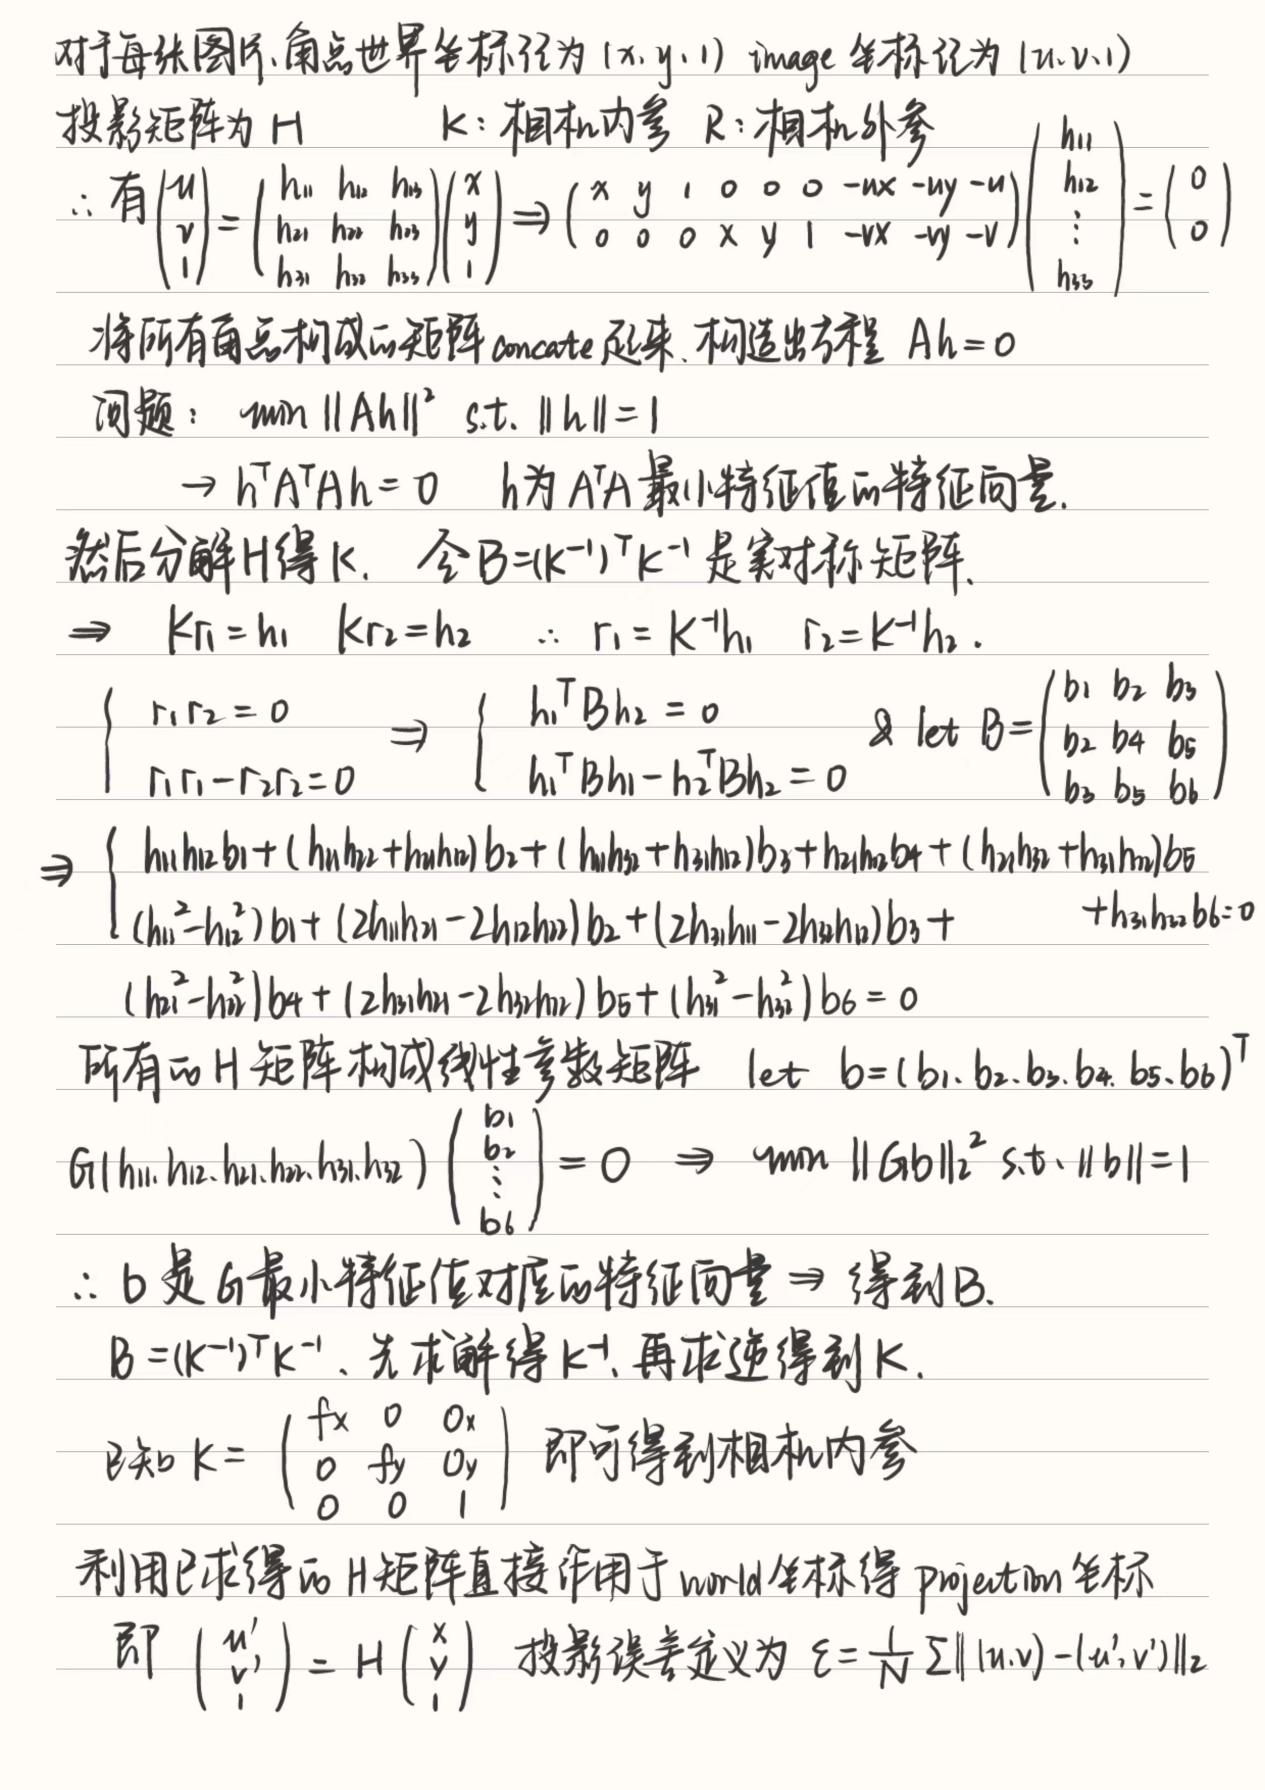 对于每张图片、角点世界坐标记为 (x, y, 1) image 坐标记为 (u, v, 1)
投影矩阵为 H K: 相机内参 R: 相机外参
∴ 有 (u v 1) = (h11 h12 h13 h21 h22 h23 h31 h32 h33) (x y 1) ⇒ (x y 1 0 0 0 -ux -uy -u 0 0 0 x y 1 -vx -vy -v) (h11 h12 ⋮ h33) = (0 0)
将所有角点构成的矩阵 concate 起来、构造出方程 Ah = 0
问题: min ||Ah||² s.t. ||h|| = 1
→ hᵀAᵀAh = 0 h为 AᵀA 最小特征值的特征向量.
然后分解H得 K. 令 B=(K⁻¹)ᵀK⁻¹ 是实对称矩阵.
⇒ Kr1 = h1 Kr2 = h2 ∴ r1 = K⁻¹h1 r2 = K⁻¹h2 .
{ r1r2 = 0 r1r1 - r2r2 = 0 ⇒ { h1ᵀBh2 = 0 h1ᵀBh1 - h2ᵀBh2 = 0 & let B = (b1 b2 b3 b2 b4 b5 b3 b5 b6)
⇒ { h11h12b1 + (h11h22 + h21h12)b2 + (h11h32 + h31h12)b3 + h21h22b4 + (h21h32 + h31h22)b5
+ h31h32b6 = 0
(h11² - h12²)b1 + (2h11h21 - 2h12h22)b2 + (2h31h11 - 2h32h12)b3 +
(h21² - h22²)b4 + (2h31h21 - 2h32h22)b5 + (h31² - h32²)b6 = 0
所有的 H 矩阵构成线性参数矩阵 let b = (b1, b2, b3, b4, b5, b6)ᵀ
G(h11, h12, h21, h22, h31, h32) (b1 b2 ⋮ b6) = 0 ⇒ min ||Gb||₂² s.t. ||b|| = 1
∴ b 是 G 最小特征值对应的特征向量 ⇒ 得到B.
B = (K⁻¹)ᵀK⁻¹、先求解得 K⁻¹, 再求逆得到 K.
已知 K = (fx 0 Ox 0 fy Oy 0 0 1) 即可得到相机内参
利用已求得的 H 矩阵直接作用于 world 坐标得 projection 坐标
即 (u' v' 1) = H (x y 1) 投影误差定义为 ε = 1/N Σ||(u,v) - (u',v')||₂